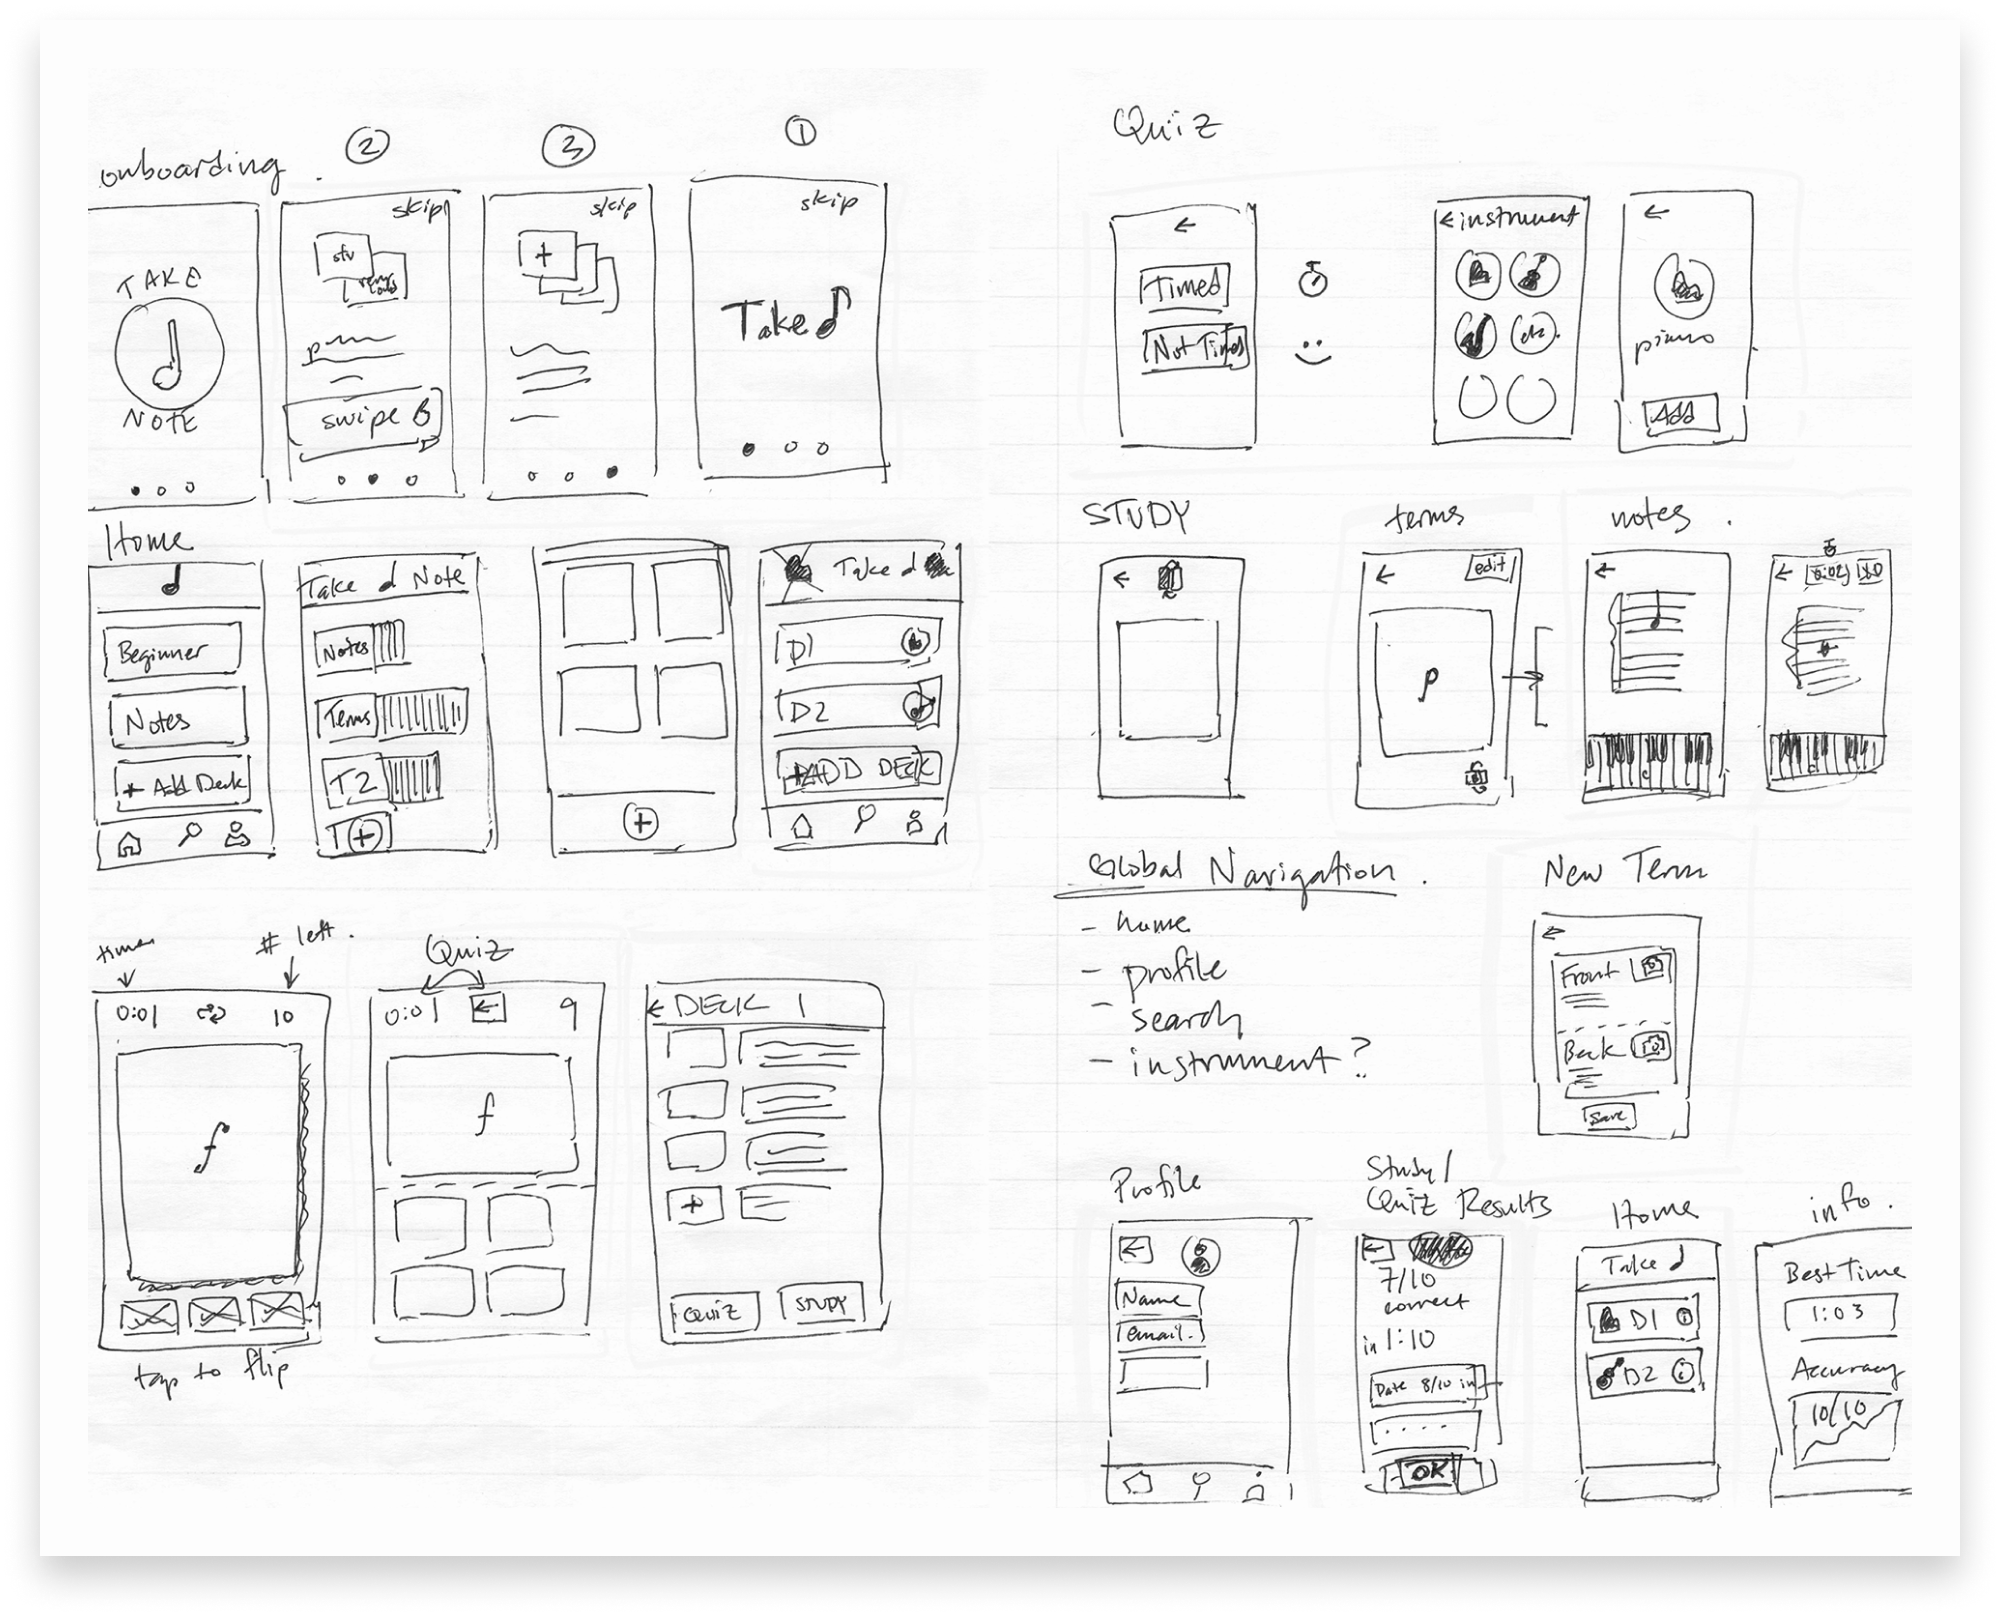 onboarding.
2
3
1
TAKE
NOTE
skip
stv
swipe
skip
+
skip
Take
Home
Beginner
Notes
+ Add Deck
Take Note
Notes
Terms
T2
+
+
Take
D1
D2
+ADD DECK
time
# left.
0:01
10
f
tap to flip
Quiz
0:01
←
9
f
← DECK 1
+
Quiz
STUDY
Quiz
←
Timed
Not Timed
← instrument
etc.
←
piano
Add
STUDY
←
terms
←
edit
p
notes.
←
←
0:02
Global Navigation.
- home
- profile
- search
- instrument?
New Term
←
Front
Back
Save
Profile
←
Name
email.
Study/
Quiz Results
←
7/10
correct
in 1:10
Date 8/10 in
OK
Home
Take
D1
D2
info.
Best Time
1:03
Accuracy
10/10